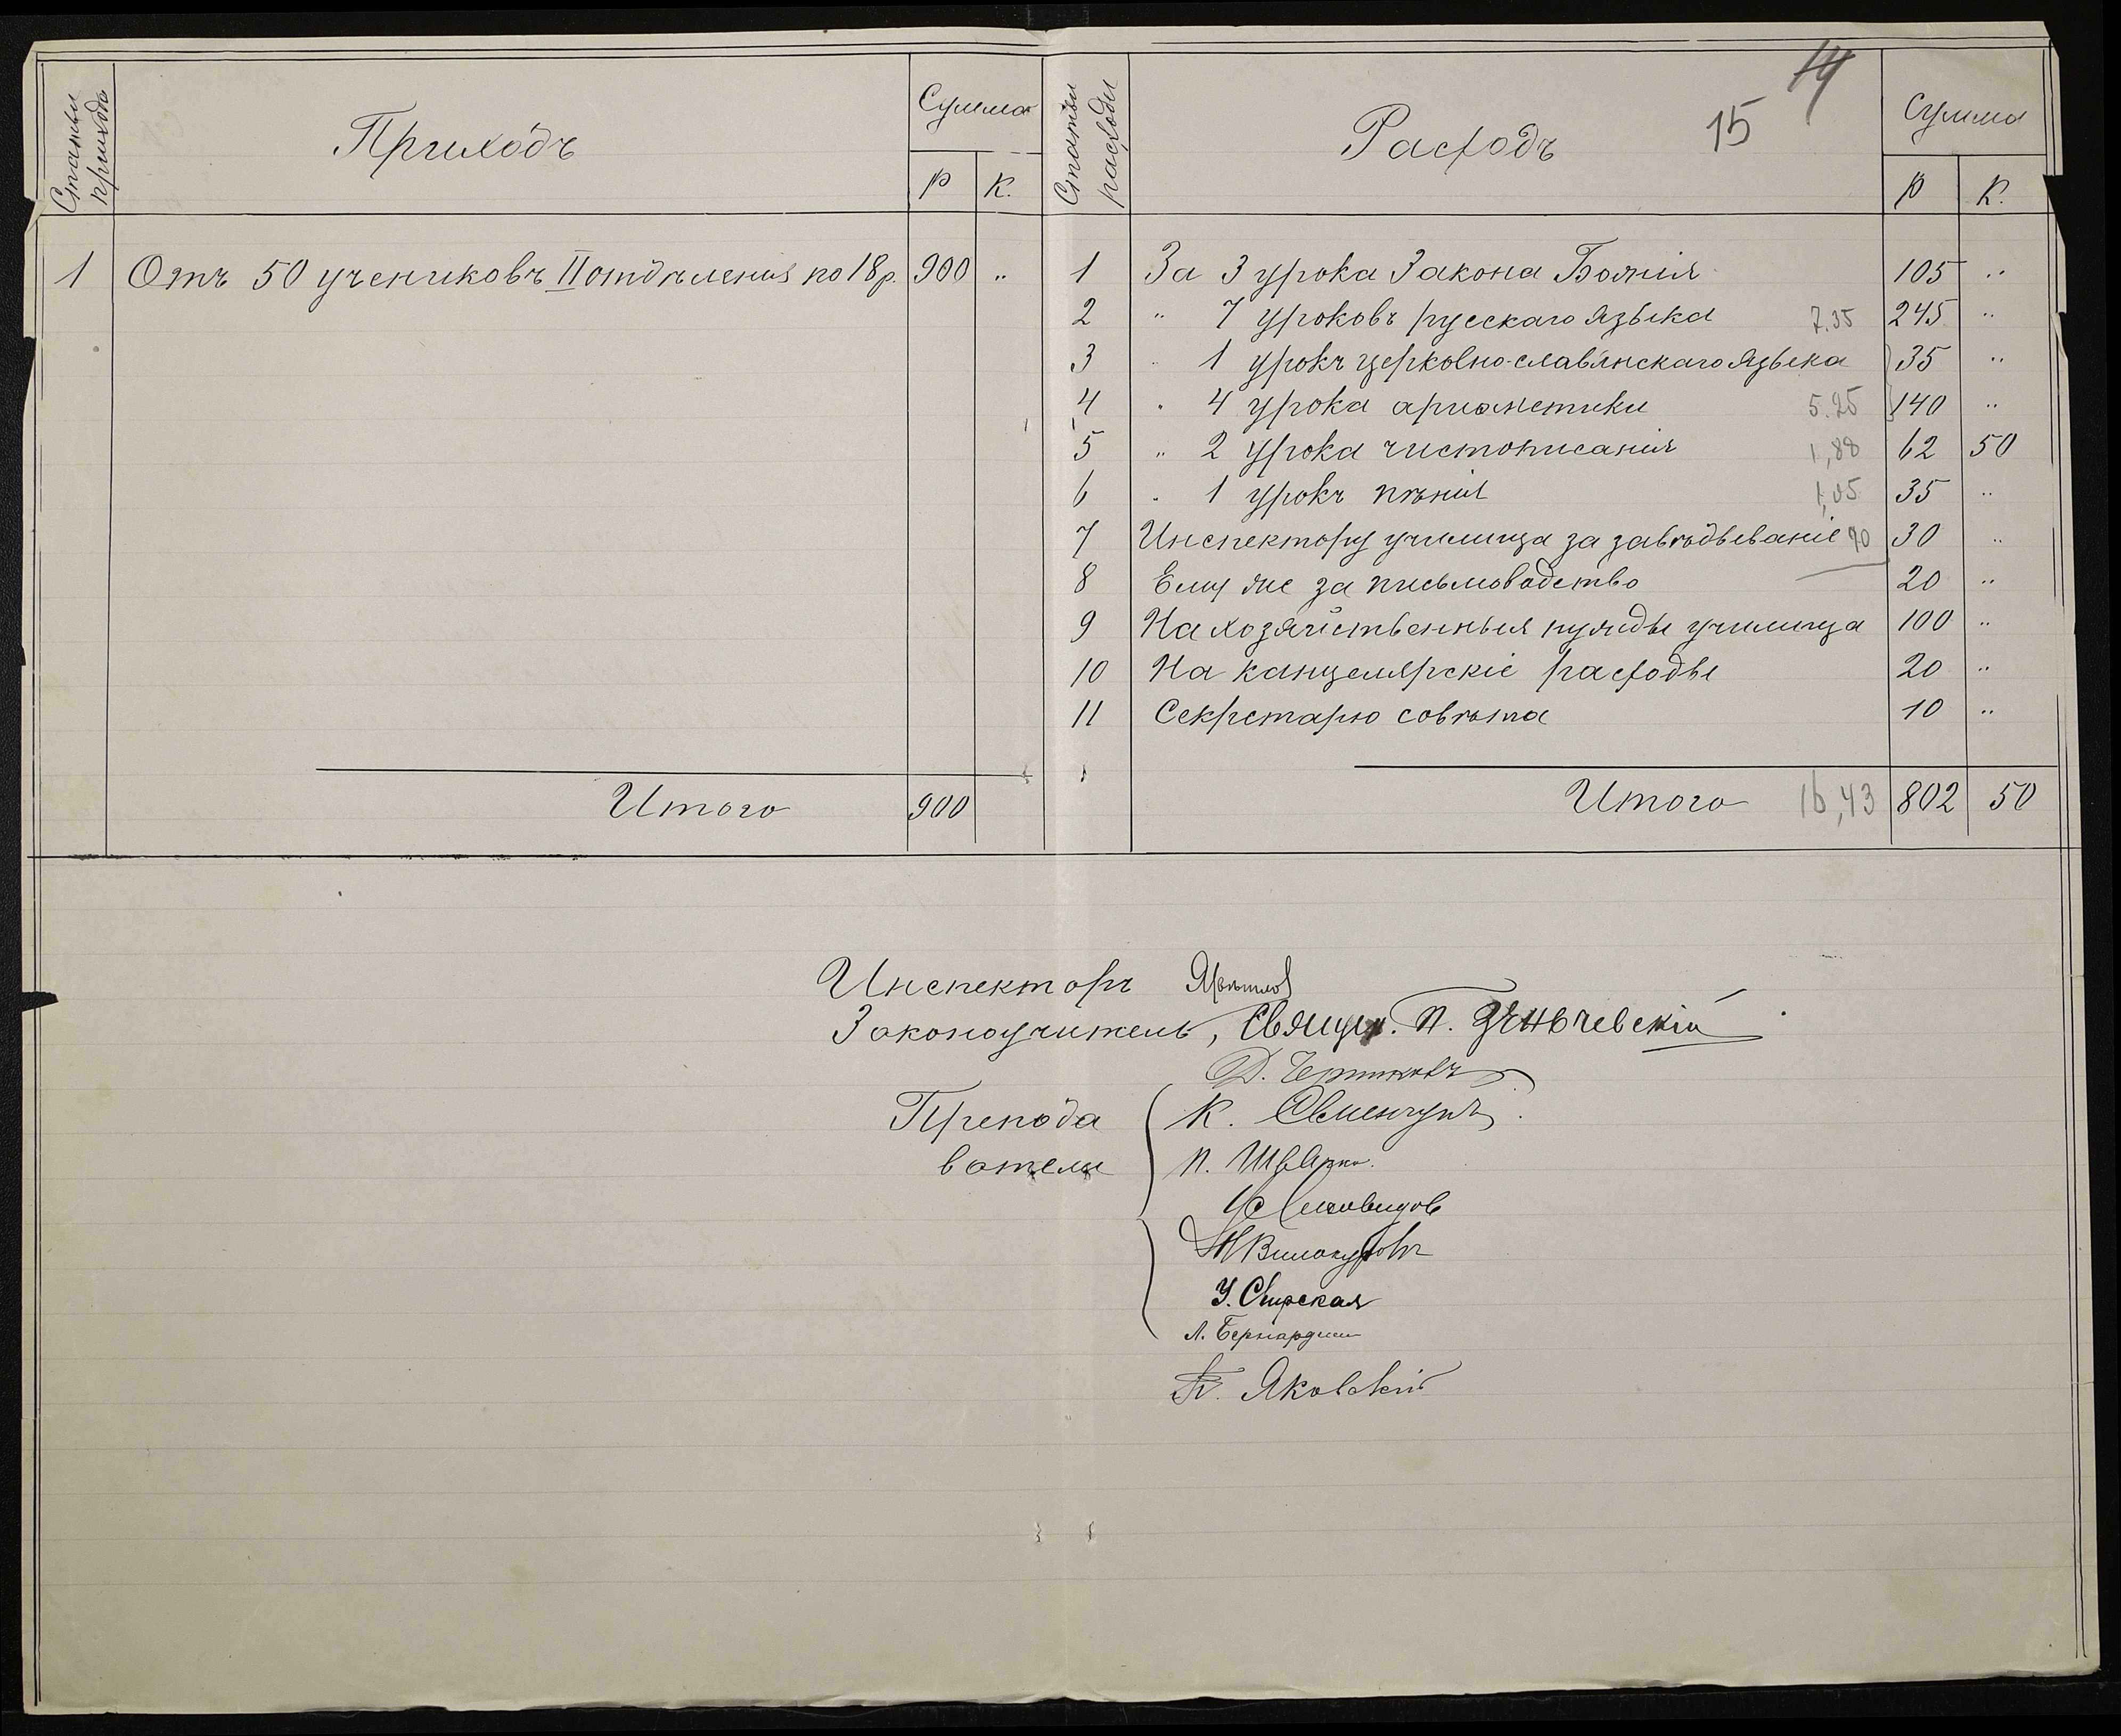 Статьи прихода
Приходъ
Сумма
Р К.
Статьи расхода
Расходъ
14
15
Сумма
Р К.
1 Отъ 50 учениковъ II отдѣленія по 18 р. 900 "
1 За 3 урока Закона Божія 105 "
2 " 7 уроковъ русскаго языка 7.35 245 "
3 " 1 урокъ церковно-славянскаго языка 35 "
4 " 4 урока ариѳметики 5.25 140 "
5 " 2 урока чистописанія 1,88 62 50
6 " 1 урокъ пѣнія 1,05 35 "
7 Инспектору училища за завѣдываніе 90 30 "
8 Ему же за письмоводство 20 "
9 На хозяйственныя нужды училища 100 "
10 На канцелярскіе расходы 20 "
11 Секретарю совѣта 10 "
Итого 900
Итого 16,43 802 50
Инспекторъ
Законоучитель, Священ. П.
Д.
Препода
ватели
К.
П.
Н Винокуровъ
Л. Бернардъ
Яковскій